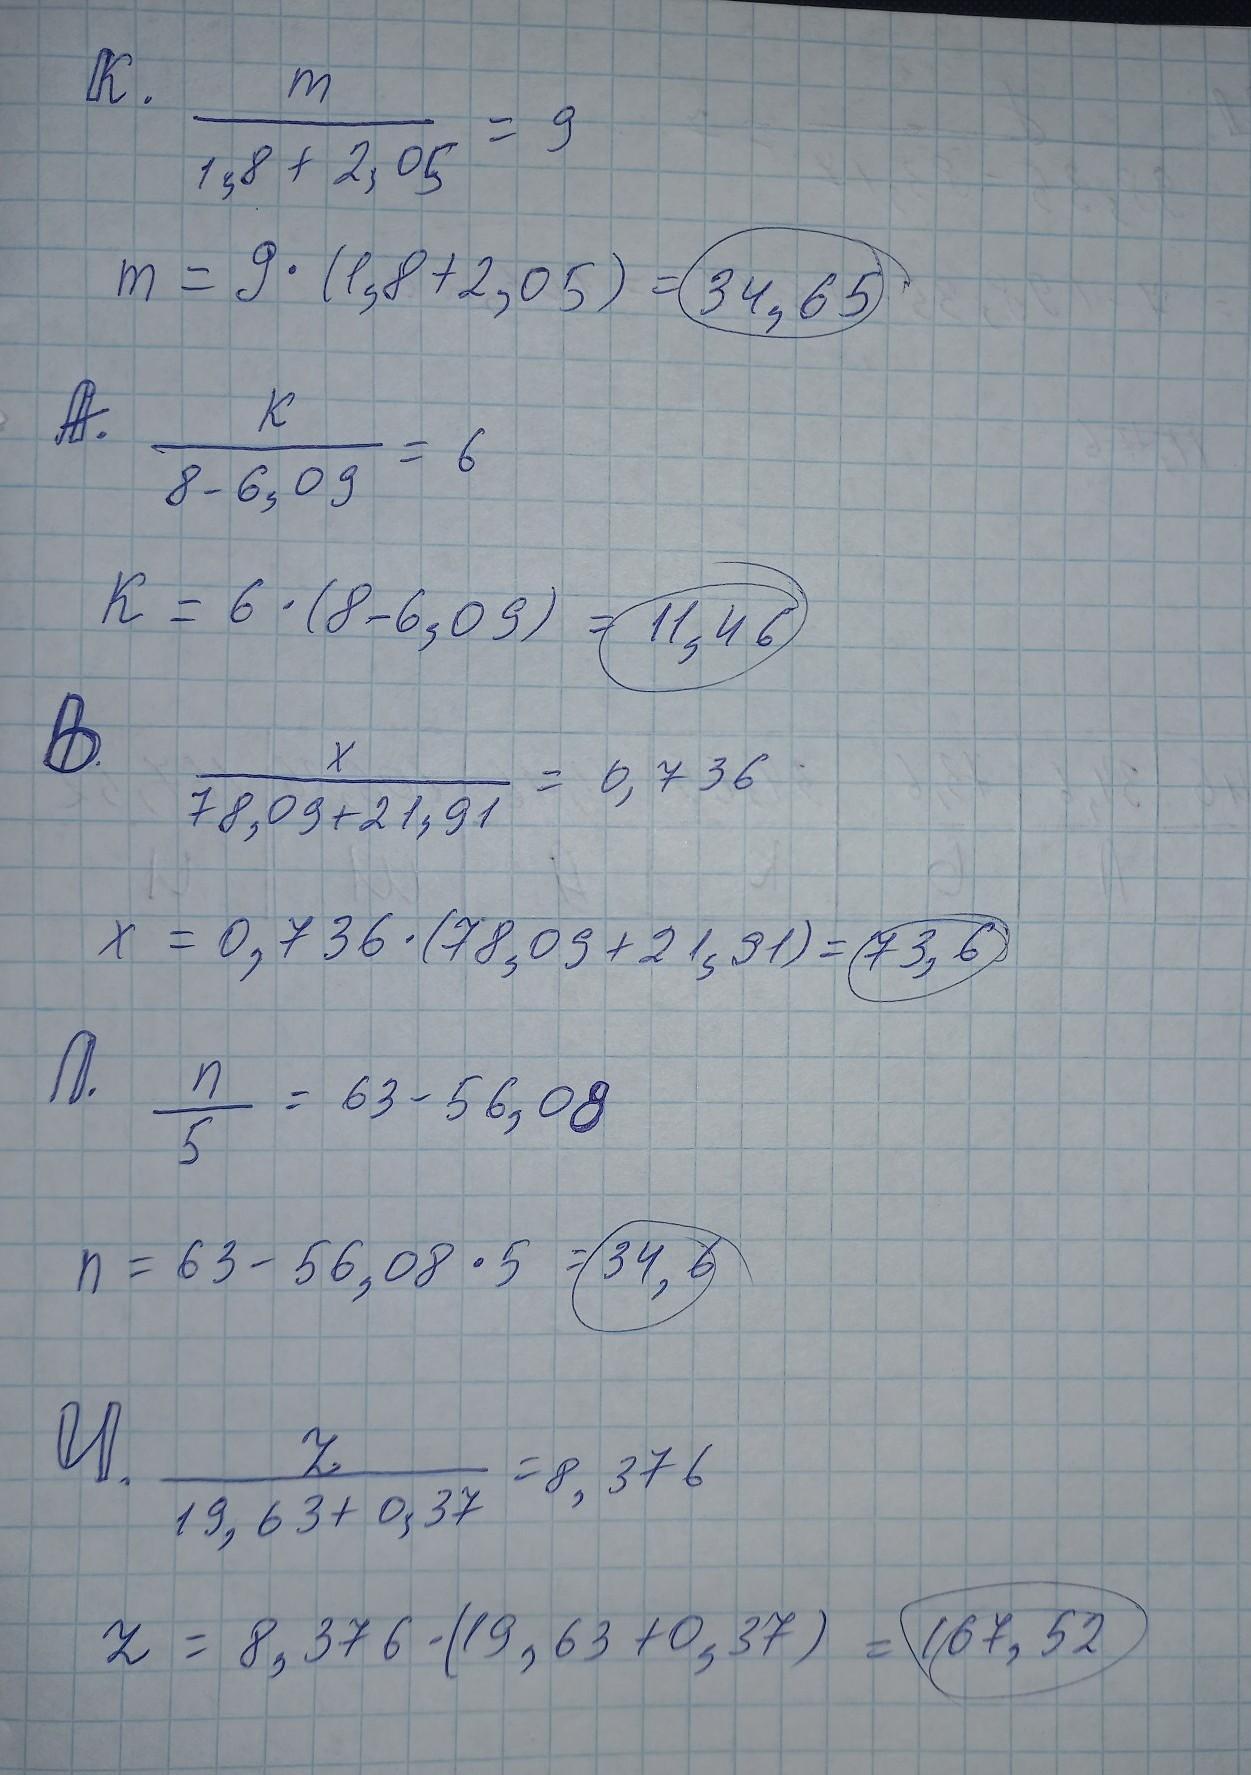 К. m / (1,8 + 2,05) = 9
m = 9 · (1,8 + 2,05) = 34,65
А. К / (8 - 6,09) = 6
К = 6 · (8 - 6,09) = 11,46
Ь. x / (78,09 + 21,91) = 0,736
x = 0,736 · (78,09 + 21,91) = 73,6
Л. n / 5 = 63 - 56,08
n = 63 - 56,08 · 5 = 34,6
И. z / (19,63 + 0,37) = 8,376
z = 8,376 · (19,63 + 0,37) = 167,52